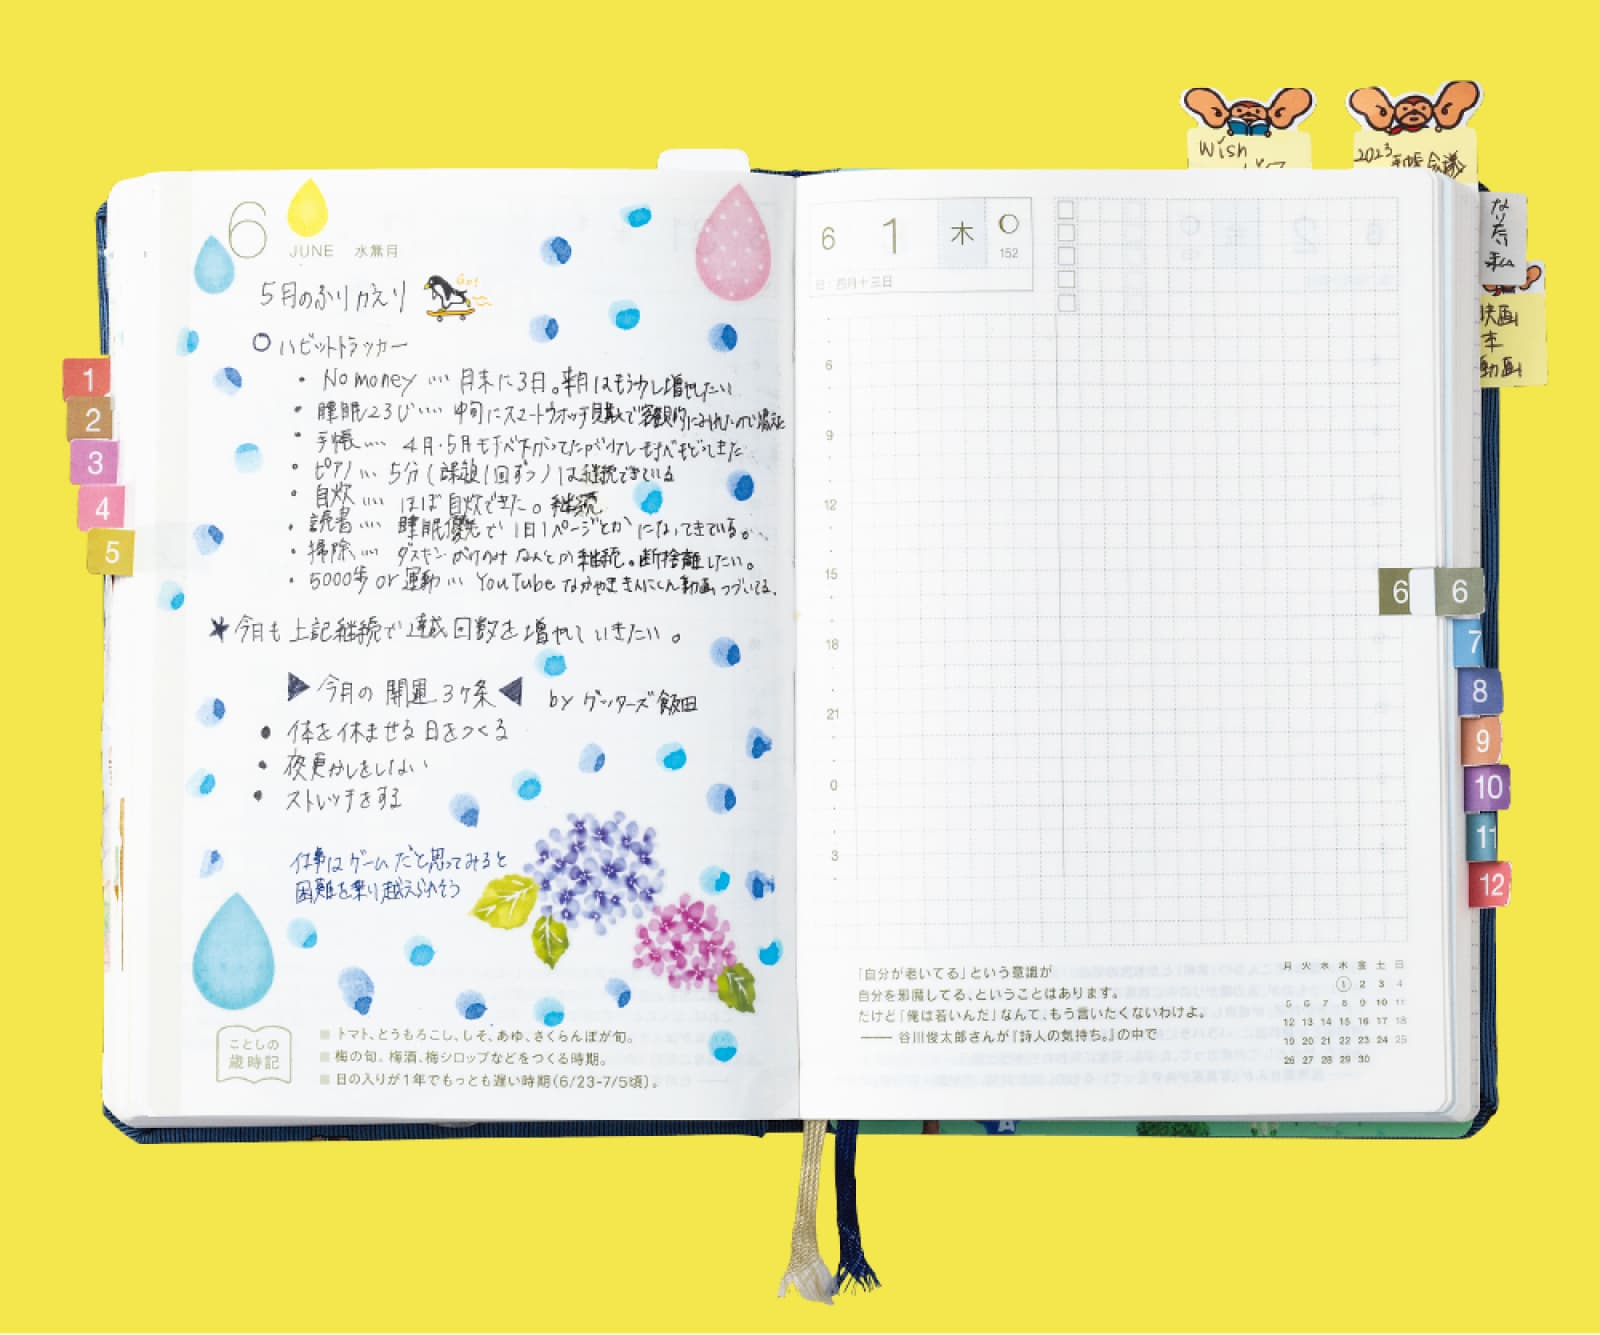 Wish
2023 手帳会議
なりたい私
映画
本
動画
6
JUNE 水無月
5月のふりかえり
Go!
ハビットトラッカー
・No money …. 月末に3日。来月はもう少し増やしたい
・睡眠23じ…. 中旬にスマートウォッチ購入で客観的にみれたので
・手帳…. 4月・5月も手べ下がってたが少しもどってきた
・ピアノ…. 5分(課題1回ずつ)は継続できている
・自炊 …. ほぼ自炊できた。継続
・読書…. 睡眠優先で1日1ページとかになってきているが…
・掃除…. ダスキン なんとか継続。断捨離したい。
・5000歩 or 運動… YouTube なかやまきんにくん動画つづいてる。
★今月も上記継続で達成回数を増やしていきたい。
▶今月の開運3ヶ条◀ by ゲッターズ飯田
● 体を休ませる日をつくる
● 夜更かしをしない
● ストレッチをする
仕事はゲームだと思ってみると
困難を乗り越えられそう
ことしの
歳時記
■ トマト、とうもろこし、しそ、あゆ、さくらんぼが旬。
■ 梅の旬。梅酒、梅シロップなどをつくる時期。
■ 日の入りが1年でもっとも遅い時期(6/23-7/5頃)。
1
2
3
4
5
6 1 木
152
旧:四月十三日
6
9
12
15
18
21
0
3
「自分が老いてる」という意識が
自分を邪魔してる、ということはあります。
だけど「俺は若いんだ」なんて、もう言いたくないわけよ。
―― 谷川俊太郎さんが『詩人の気持ち。』の中で
月 火 水 木 金 土 日
1 2 3 4
5 6 7 8 9 10 11
12 13 14 15 16 17 18
19 20 21 22 23 24 25
26 27 28 29 30
6 6
7
8
9
10
11
12